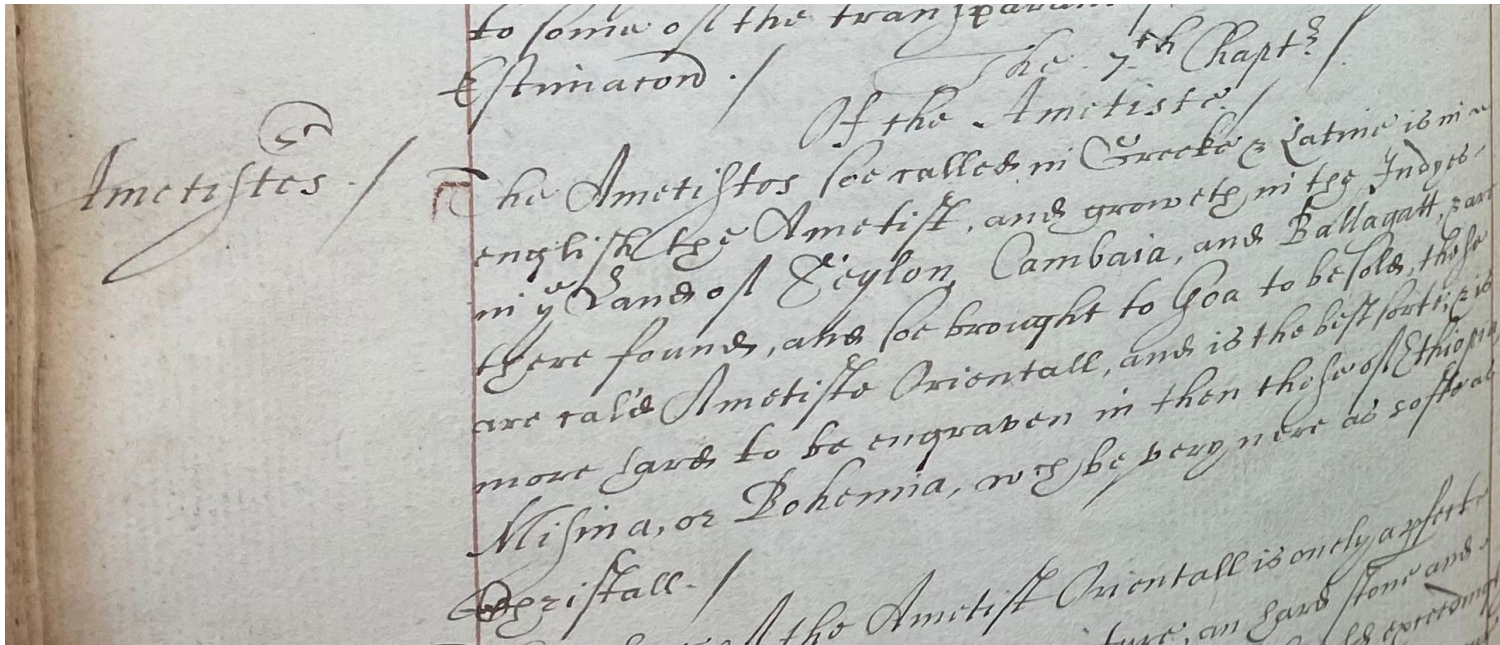 to some of the transparant
Estimacon ./
The 7th Chaptr /
Of the Ametiste /
Ametistes ./
The Ametistos soe called in Greeke & Latine is in
english the Ametist, and groweth in the Indyes
in ye Land of Zeylon, Cambaia, and Ballagatt, & are
there found, and soe brought to Goa to be sold, these
are cal'd Ametiste Orientall, and is the best sorte, & is
more hard to be engraven in then those of Ethiopia,
Misina, or Bohemia, wch be very nere as softe as
Christall ./
the Ametist Orientall is onely a pfecte
an hard stone and
exceeding